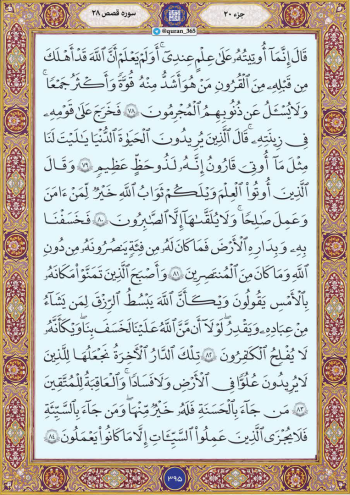 جزء ۲۰
@quran_365
سوره قصص ۲۸
قَالَ إِنَّمَآ أُوتِيتُهُۥ عَلَىٰ عِلْمٍ عِندِىٓۚ أَوَلَمْ يَعْلَمْ أَنَّ ٱللَّهَ قَدْ أَهْلَكَ
مِن قَبْلِهِۦ مِنَ ٱلْقُرُونِ مَنْ هُوَ أَشَدُّ مِنْهُ قُوَّةً وَأَكْثَرُ جَمْعًاۚ
وَلَا يُسْـَٔلُ عَن ذُنُوبِهِمُ ٱلْمُجْرِمُونَ ۷۸ فَخَرَجَ عَلَىٰ قَوْمِهِۦ
فِى زِينَتِهِۦۖ قَالَ ٱلَّذِينَ يُرِيدُونَ ٱلْحَيَوٰةَ ٱلدُّنْيَا يَـٰلَيْتَ لَنَا
مِثْلَ مَآ أُوتِىَ قَـٰرُونُ إِنَّهُۥ لَذُو حَظٍّ عَظِيمٍ ۷۹ وَقَالَ
ٱلَّذِينَ أُوتُوا۟ ٱلْعِلْمَ وَيْلَكُمْ ثَوَابُ ٱللَّهِ خَيْرٌ لِّمَنْ ءَامَنَ
وَعَمِلَ صَـٰلِحًاۚ وَلَا يُلَقَّىٰهَآ إِلَّا ٱلصَّـٰبِرُونَ ۸۰ فَخَسَفْنَا
بِهِۦ وَبِدَارِهِ ٱلْأَرْضَ فَمَا كَانَ لَهُۥ مِن فِئَةٍ يَنصُرُونَهُۥ مِن دُونِ
ٱللَّهِ وَمَا كَانَ مِنَ ٱلْمُنتَصِرِينَ ۸۱ وَأَصْبَحَ ٱلَّذِينَ تَمَنَّوْا۟ مَكَانَهُۥ
بِٱلْأَمْسِ يَقُولُونَ وَيْكَأَنَّ ٱللَّهَ يَبْسُطُ ٱلرِّزْقَ لِمَن يَشَآءُ
مِنْ عِبَادِهِۦ وَيَقْدِرُۖ لَوْلَآ أَن مَّنَّ ٱللَّهُ عَلَيْنَا لَخَسَفَ بِنَاۖ وَيْكَأَنَّهُۥ
لَا يُفْلِحُ ٱلْكَـٰفِرُونَ ۸۲ تِلْكَ ٱلدَّارُ ٱلْـَٔاخِرَةُ نَجْعَلُهَا لِلَّذِينَ
لَا يُرِيدُونَ عُلُوًّا فِى ٱلْأَرْضِ وَلَا فَسَادًاۚ وَٱلْعَـٰقِبَةُ لِلْمُتَّقِينَ
۸۳ مَن جَآءَ بِٱلْحَسَنَةِ فَلَهُۥ خَيْرٌ مِّنْهَاۖ وَمَن جَآءَ بِٱلسَّيِّئَةِ
فَلَا يُجْزَى ٱلَّذِينَ عَمِلُوا۟ ٱلسَّيِّـَٔاتِ إِلَّا مَا كَانُوا۟ يَعْمَلُونَ ۸۴
۳۹۵